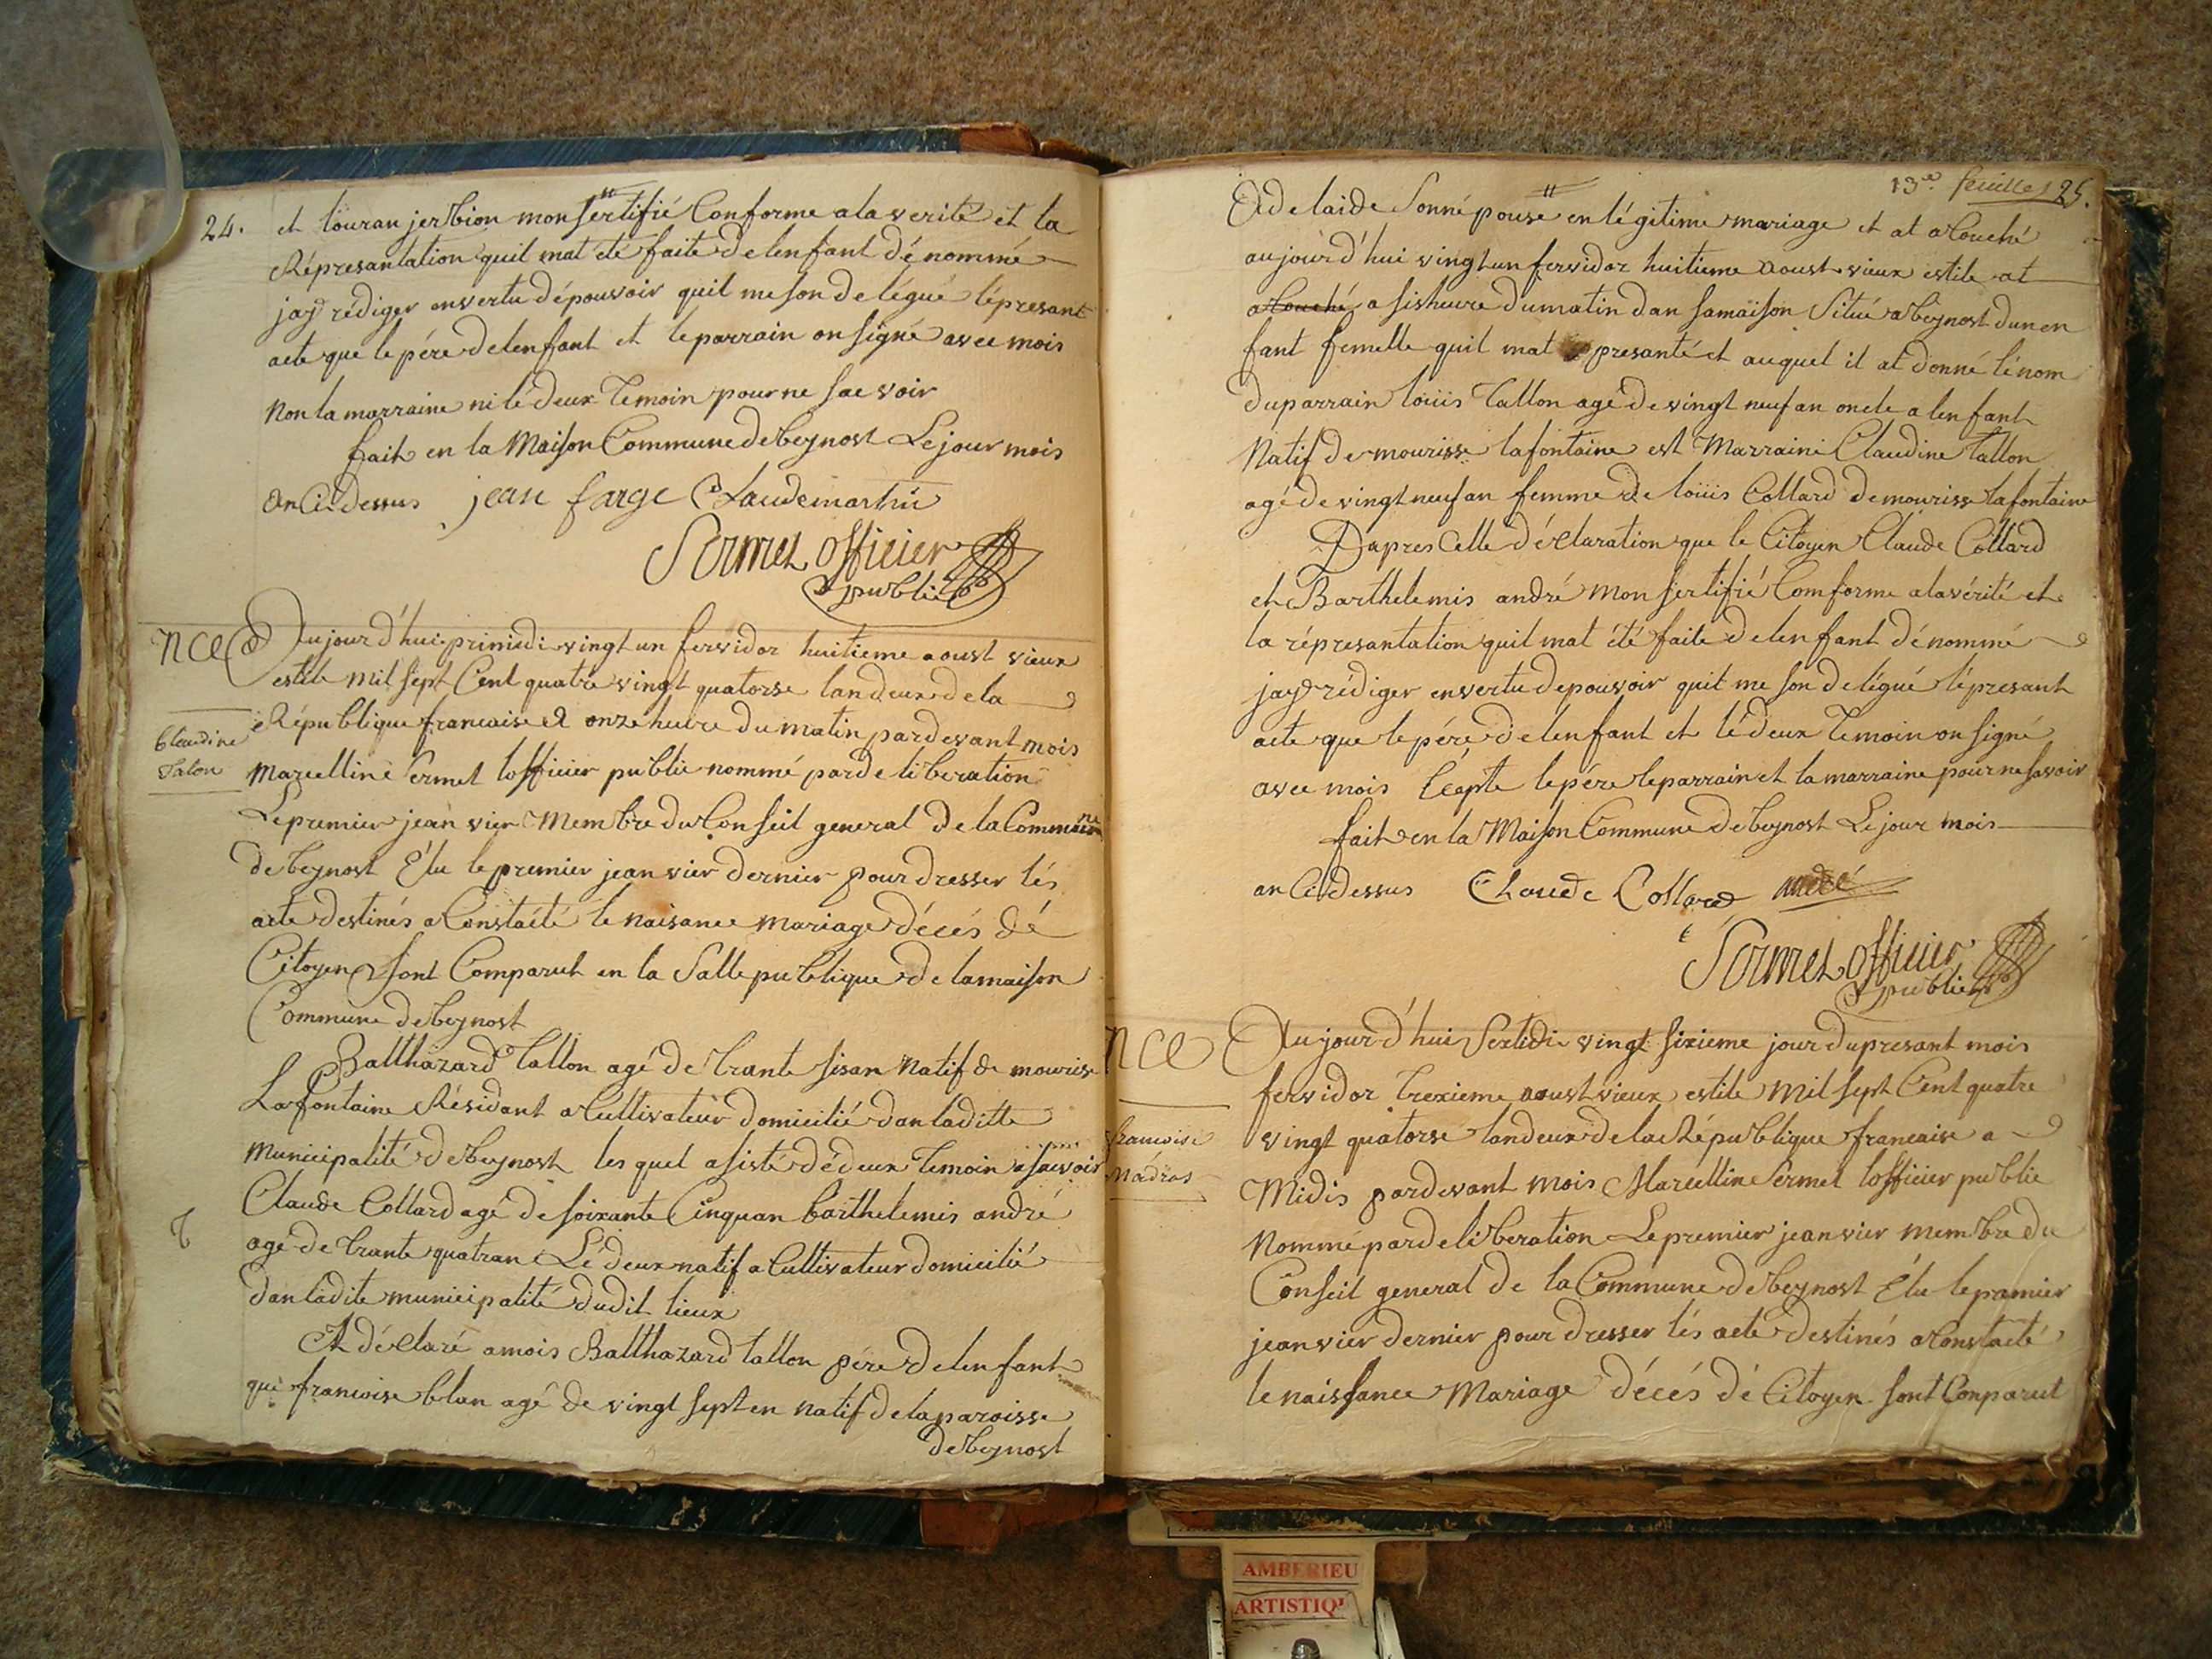 24.
et louran jerbion mon sertifié Conforme ala verité et la
Réprésantation quil mat été faite delenfant dénommé
jay rédiger envertu dépouvoir quil me son delégué léprésant
acte que le pére delenfant et leparrain on signé avec mois
Non la marraine ni lé deux temoin pour ne sae voir
fait en la Maison Commune debeynost Le jour mois
an Ci dessus jean farge Claudemartin
Sermet officier
public
Nce
Aujourd'hui primidi vingt un fervidor huitieme aoust vieux
estile mil sept Cent quatre vingt quatorse landeux dela
Claudine
Talon
République francaise a onze heure du matin pardevant mois
Marcelline Sermet lofficier public nommé pardeliberation
Le premier jeanvier Membre du Conseil general de la Commune
debeynost Élu le premier jeanvier dernier pour dresser lés
acte destinés a Constaété le naisance mariage décés dé
Citoyen sont Comparut en la Salle publique de lamaison
Commune debeynost
Balthazard tallon agé de trante sisan Natif de mourise
Lafontaine Résidant a Cultivateur domicilié dan laditte
municipalité debeynost les quel asisté dédeux temoin asavoir
Claude Collard agé de soixante Cinquan barthelemis andré
agé de trante quatran Lé deux natif a Cultivateur domicilié
dan ladite municipalité dudit lieux
Et déclaré amois Balthazard tallon pére delenfant
que francoise blan agé de vingt sept en natif dela paroisse
debeynost
13e feuilles 25.
Adelaide Sonnépouse en légitime mariage et at a Couché
aujourd'hui vingt un fervidor huitieme aoust vieux estile at
a Couché a sisheure dumatin dan samaison Situé a beynost dunen
fant femelle quil mat presanté et auquel il at donné lénom
duparrain loüis tallon agé de vingt neuf an oncle a lenfant
Natif de mourisse lafontaine est Marraine Claudine tallon
agé de vingt neuf an femme de loüis Collard de mourisse lafontaine
Dapres Celle déclaration que le Citoyen Claude Collard
et Barthelemis andré mon sertifié Comforme alavérité et
la répresantation quil mat été faite delenfant dénommé
jay rédiger envertu depouvoir quil me son delégué lépresant
acte que le pére delenfant et lé deux temoin on signé
avec mois Céepte le pére leparrain et la marraine pour ne savoir
fait en la Maison Commune debeynost Le jour mois
an Ci dessus Claude Collard andré
Sermet officier
public
Nce
Aujourd'hui Sextidi vingt sixieme jour du presant mois
fervidor trexieme aoust vieux estile Mil sept Cent quatre
francoise
Nadras
vingt quatorse landeux dela République francaise a
Midis pardevant mois Marcelline Sermet lofficier public
Nommé pardeliberation Le premier jeanvier membre du
Conseil general de la Commune debeynost Élu le pamier
jeanvier dernier pour dresser lés acte destinés a Constaété
le naissance Mariage décés dé Citoyen sont Conparut
AMBERIEU
ARTISTIQ